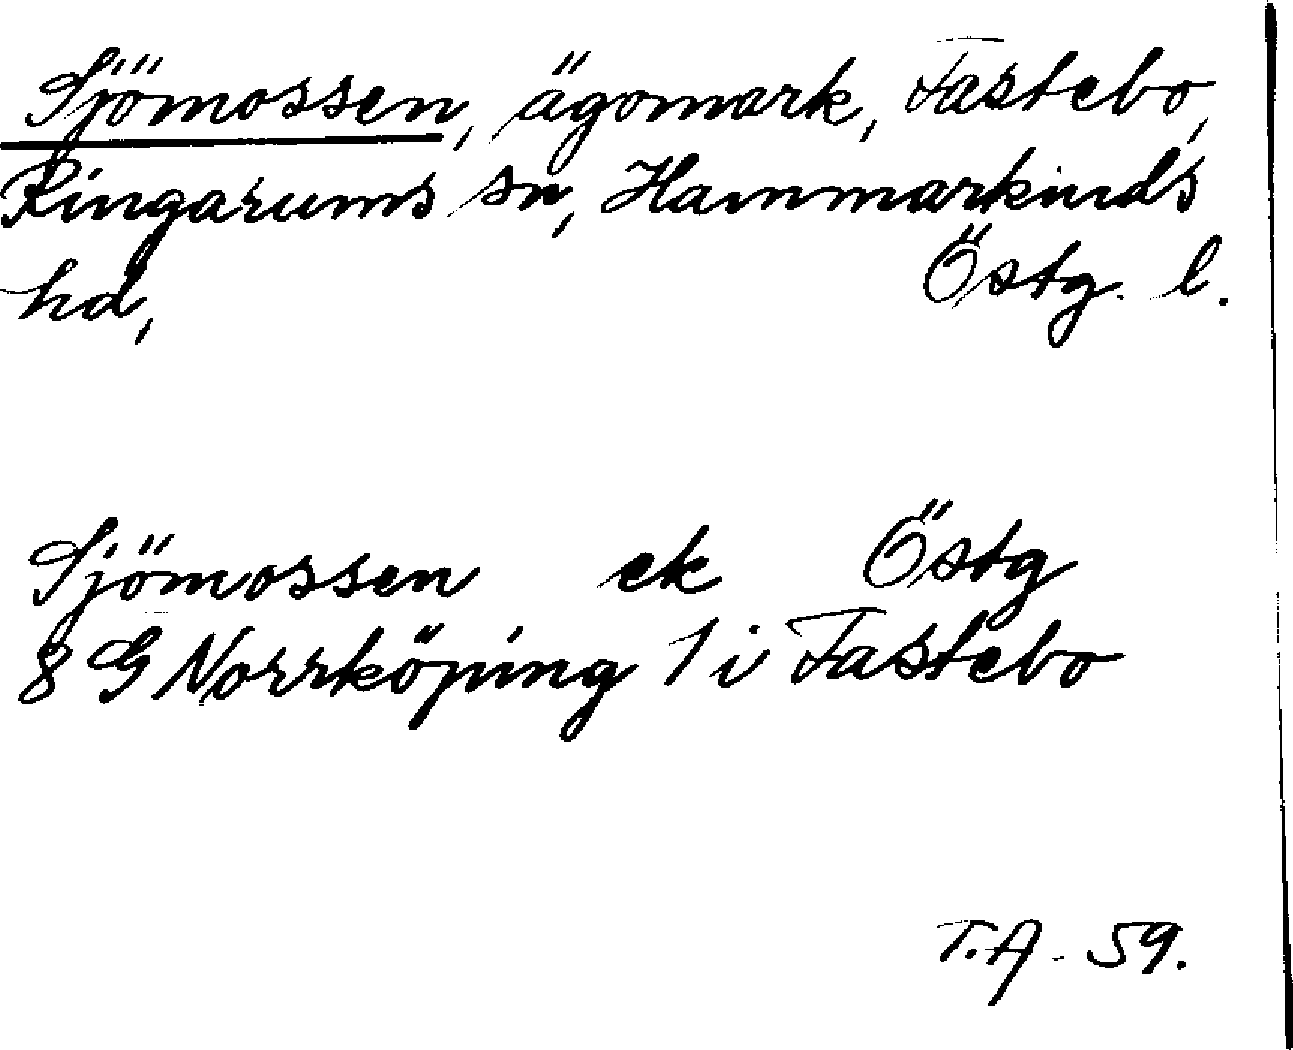 Sjömossen, ägomark, Fastebo,
Ringarums sn, Hammarkinds
hd, Östg. l.
Sjömossen ek Östg
8 G Norrköping 1 i Fastebo
T.A. 59.